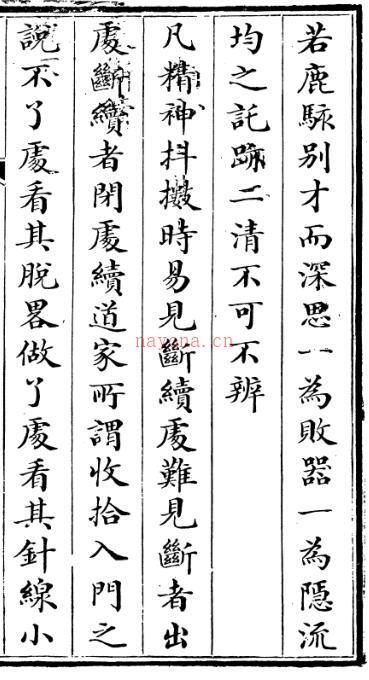 若鹿駼别才而深思一為敗器一為隱流
均之託跡二清不可不辨
凡精神抖擻時易見斷續處難見斷者出
處斷續者閉處續道家所謂收拾入門之
說不了處看其脫畧做了處看其針線小
nayona.cn